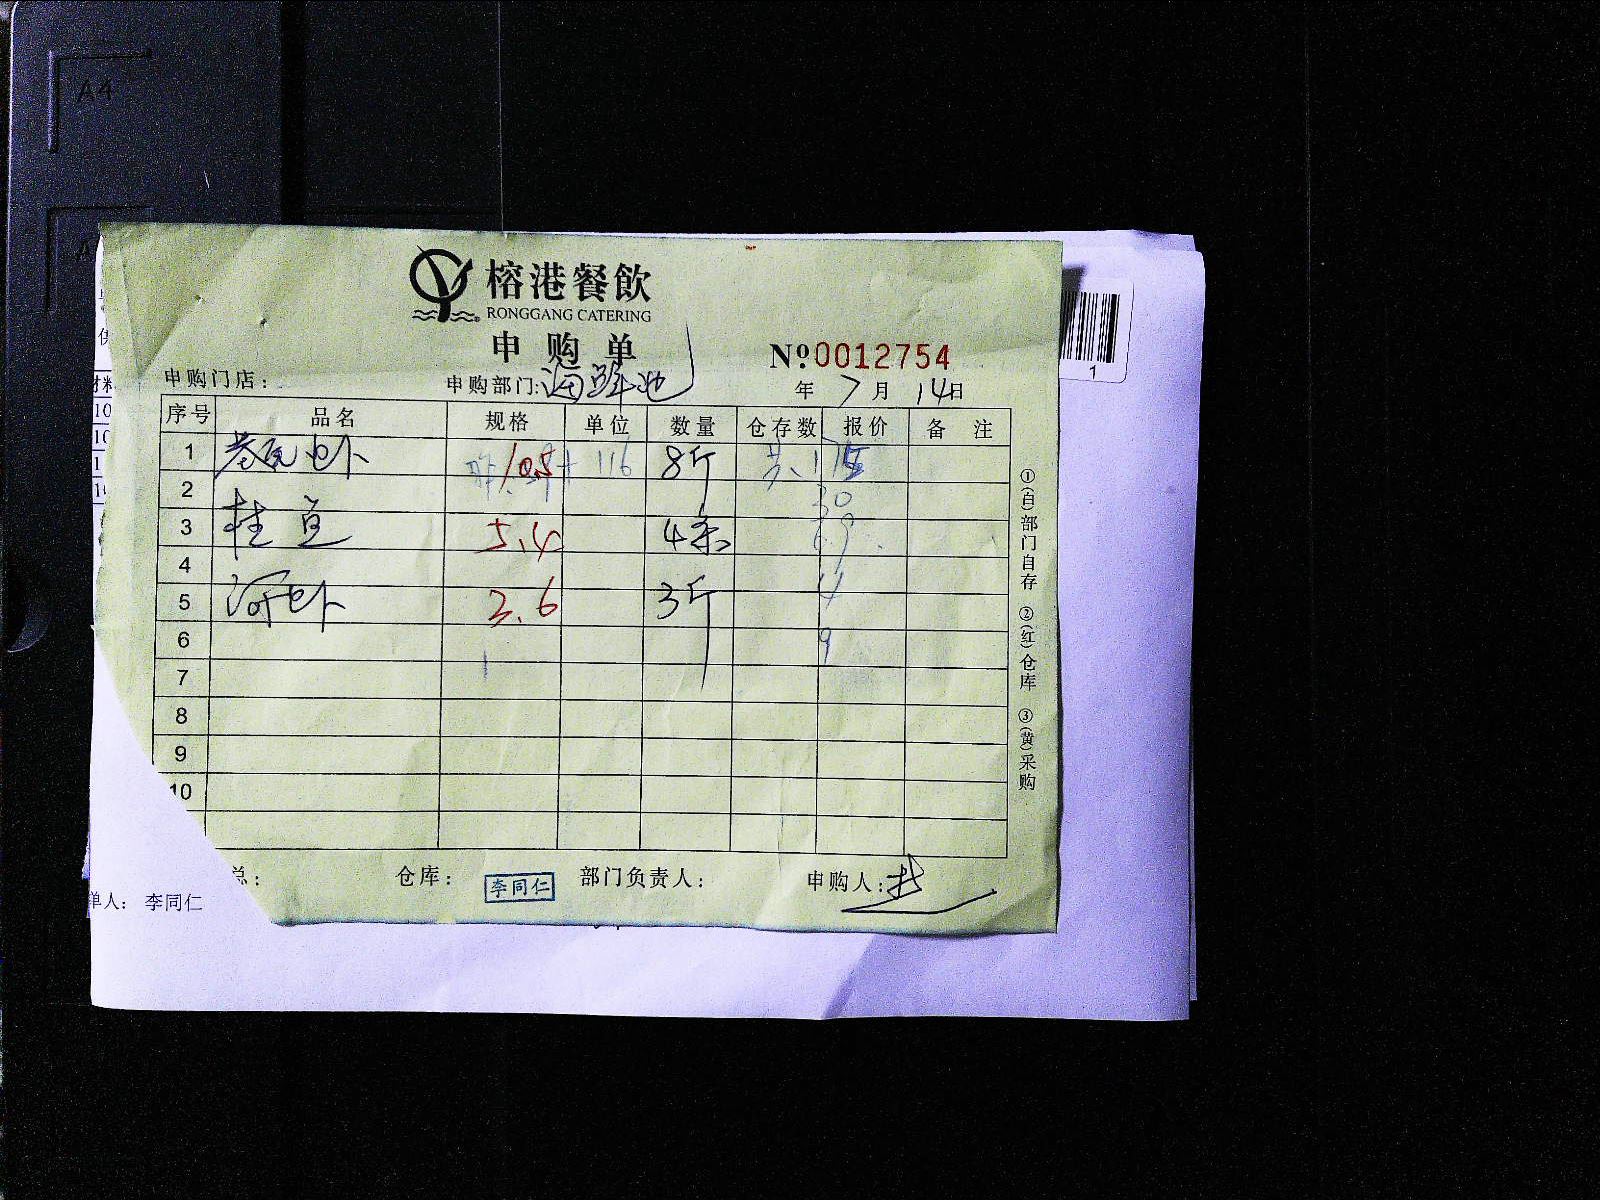 A4
榕港餐飲
RONGGANG CATERING
申购单
Nº.0012754
申购门店：
申购部门：海鲜池
年 7 月 14 日
序号 品名 规格 单位 数量 仓存数 报价 备注
1 10.5 116 8斤
2 30
3 桂鱼 5.4 4条
4
5 河虾 3.6 3斤
6
7
8
9
10
①(白)部门自存 ②(红)仓库 ③(黄)采购
总： 仓库： 李同仁 部门负责人： 申购人：
单人： 李同仁
1